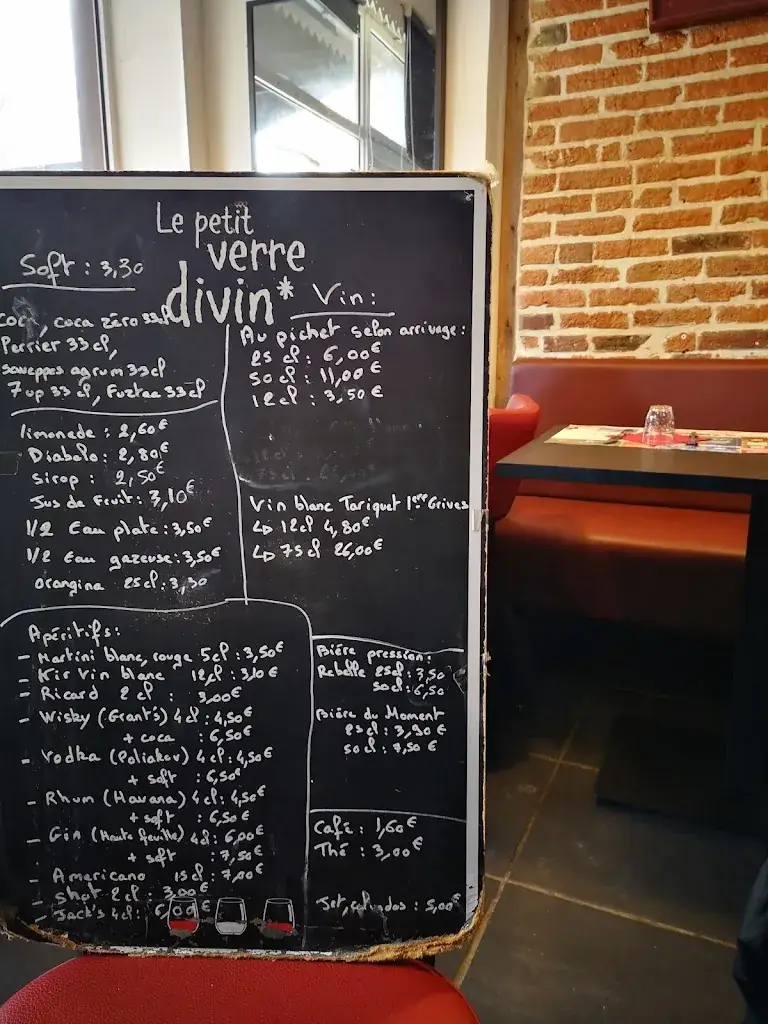 Le petit
verre
divin*
Soft : 3,30
coca zéro 33cl
Perrier 33cl,
schweppes agrum 33cl
7up 33cl, Fuztea 33cl
limonade : 2,60€
Diabolo : 2,80€
sirop : 2,50€
Jus de Fruit : 3,10€
1/2 Eau plate : 3,50€
1/2 Eau gazeuse : 3,50€
orangina 25cl : 3,30
Vin :
Au pichet selon arrivage :
25 cl : 6,00€
50 cl : 11,00€
12 cl : 3,50€
Vin blanc Tariquet 1ères Grives
↳ 12cl 4,80€
↳ 75cl 26,00€
Apéritifs :
- Martini blanc, rouge 5cl : 3,50€
- Kir vin blanc 12cl : 3,10€
- Ricard 2cl : 3,00€
- Wisky (Grant's) 4cl : 4,50€
+ coca : 6,50€
- Vodka (Poliakov) 4cl : 4,50€
+ soft : 6,50€
- Rhum (Havana) 4cl : 4,50€
+ soft : 6,50€
- Gin (Haute feuille) 4cl : 6,00€
+ soft : 7,50€
- Americano 15cl : 7,00€
- shot 2cl 3,00€
- Jack's 4cl : 6,00€
Bière pression :
Rebelle 25cl : 3,50
50cl : 6,50
Bière du Moment
25cl : 3,90€
50cl : 7,50€
Café : 1,60€
Thé : 3,00€
Jet, calvados : 5,00€